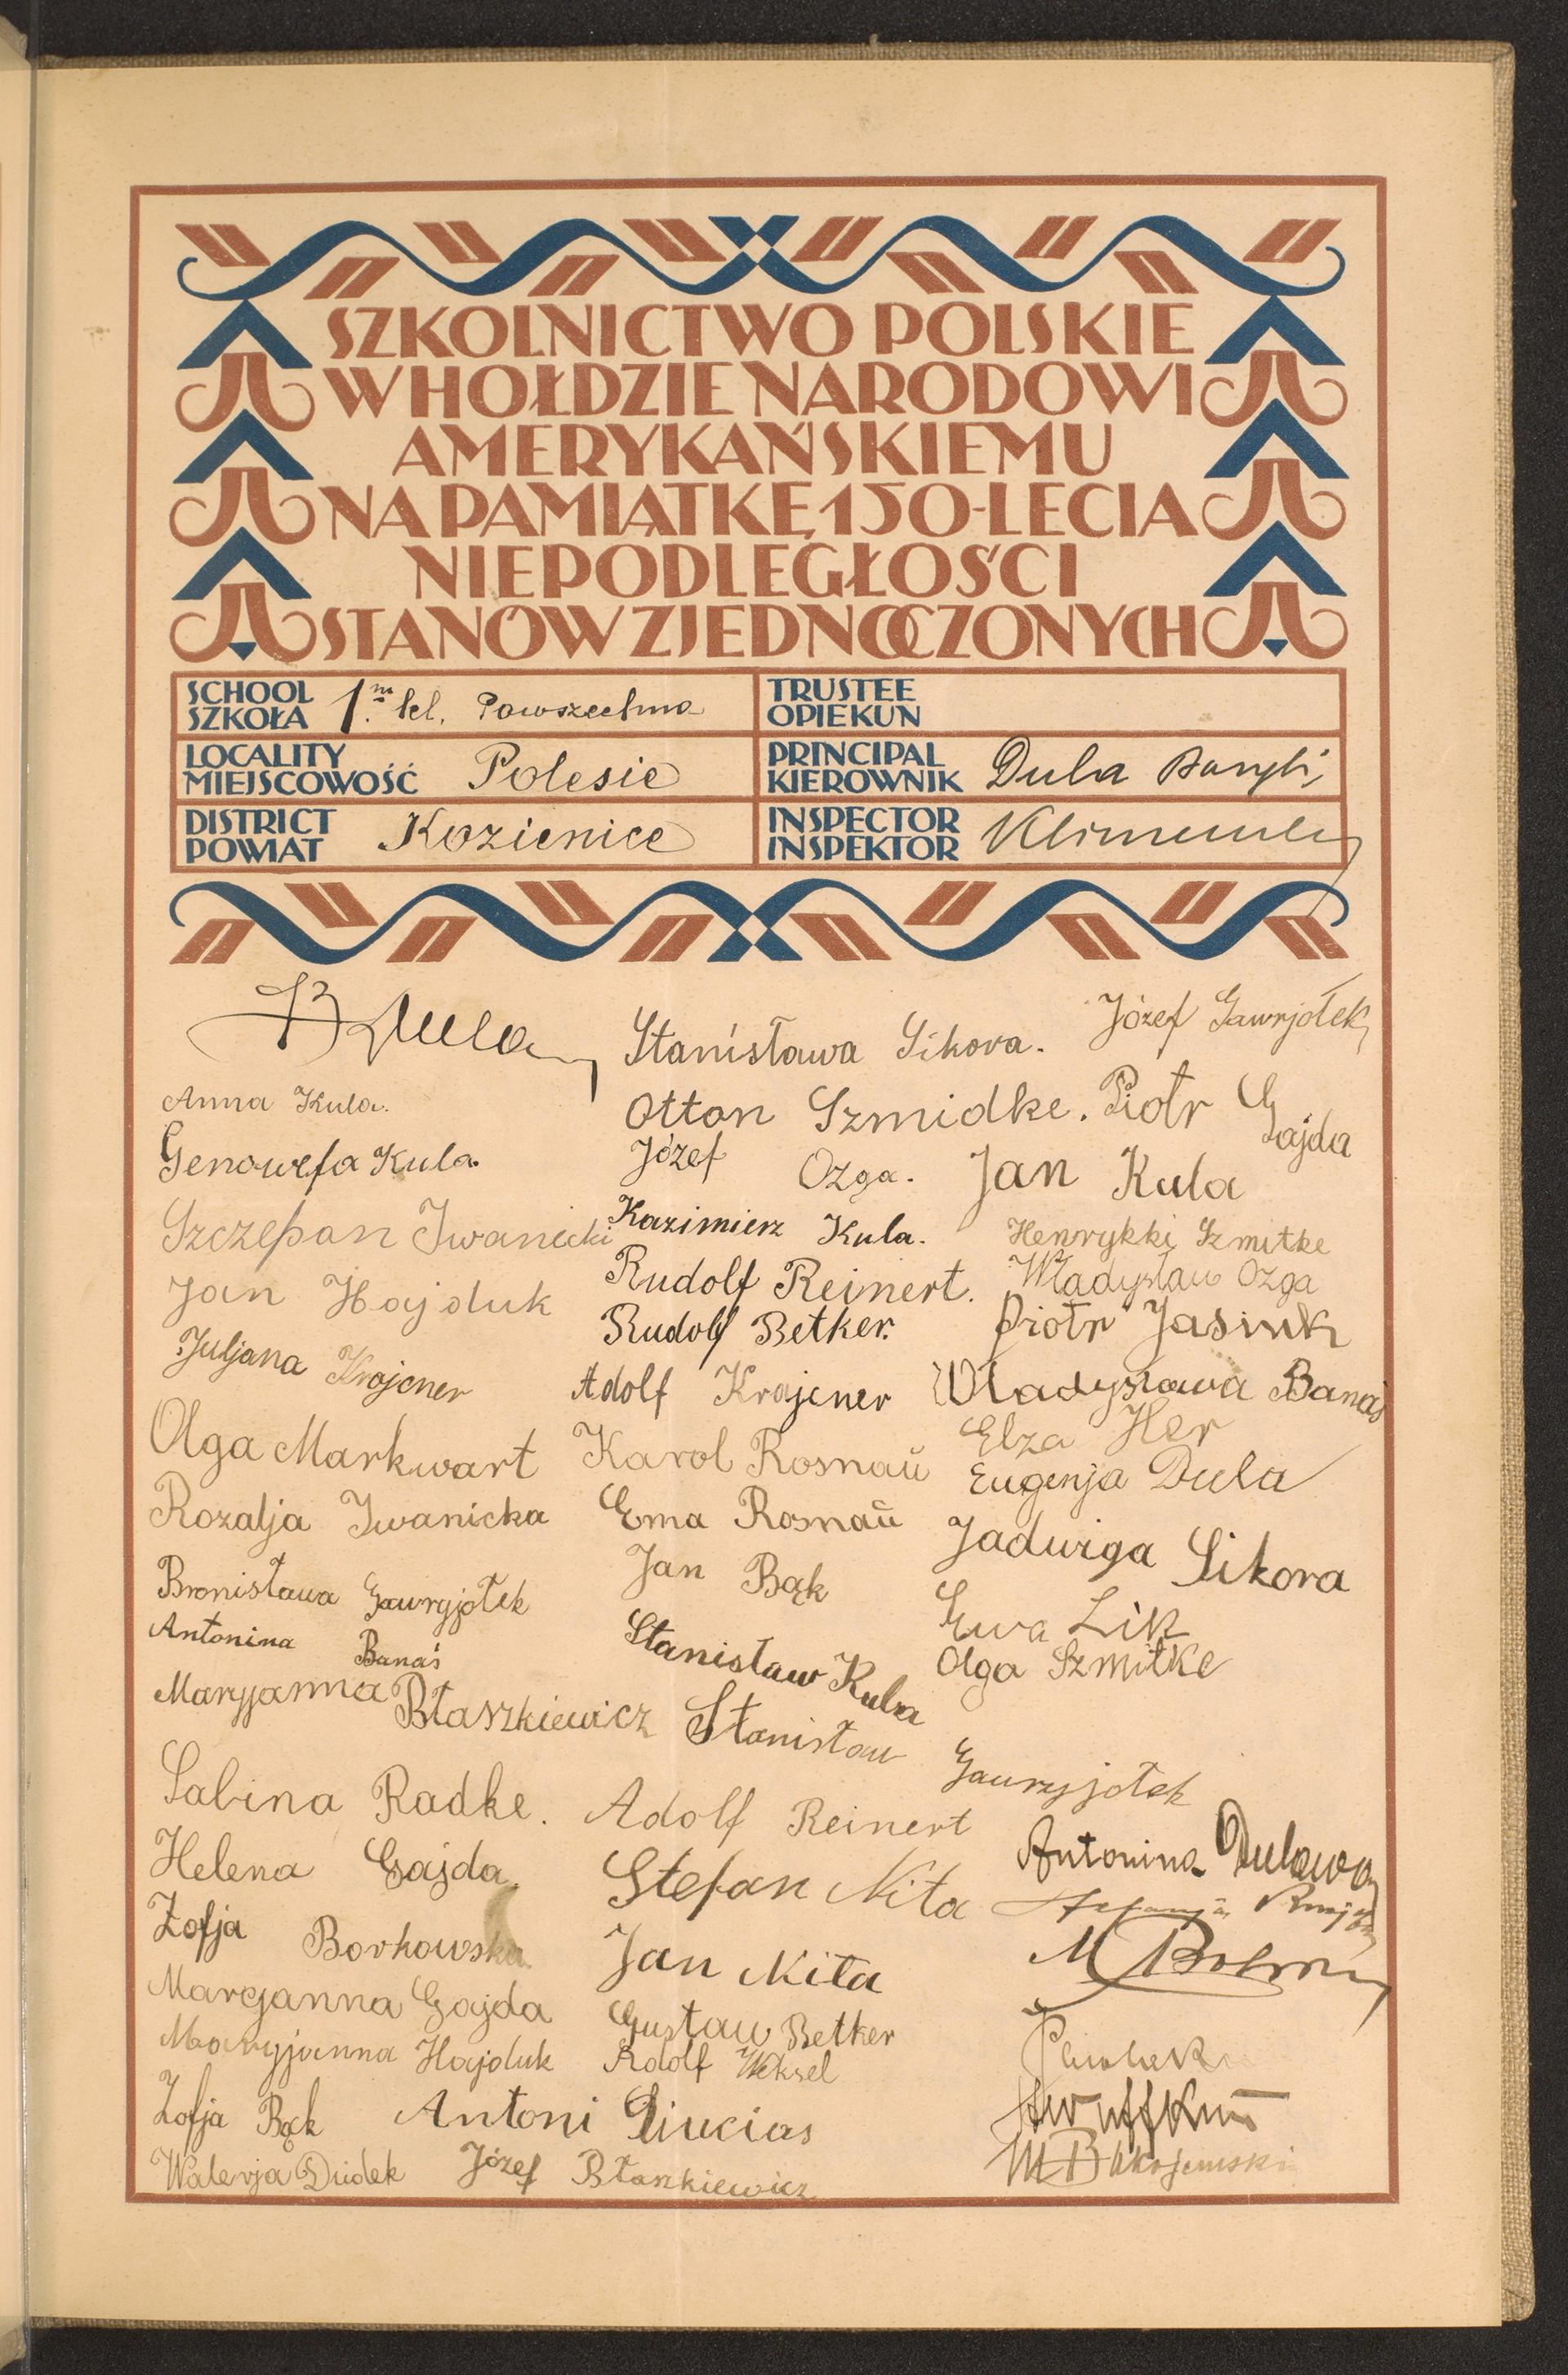 SZKOLNICTWO POLSKIE
W HOŁDZIE NARODOWI
AMERYKAŃSKIEMU
NA PAMIĄTKĘ 150-LECIA
NIEPODLEGŁOŚCI
STANÓW ZJEDNOCZONYCH
SCHOOL
SZKOŁA 1.m kl. Powszechna
TRUSTEE
OPIEKUN
LOCALITY
MIEJSCOWOŚĆ Polesie
PRINCIPAL
KIEROWNIK Dula
DISTRICT
POWIAT Kozienice
INSPECTOR
INSPEKTOR
B Dula
Anna Kula.
Genowefa Kula.
Szczepan Iwanicki
Jan Hajduk
Juljana Krajcner
Olga Markwart
Rozalja Iwanicka
Bronisława Gawryjołek
Antonina Banaś
Maryjanna Błaszkiewicz
Sabina Radke.
Helena Gajda.
Zofja Borkowska.
Marejanna Gajda
Maryjanna Hajduk
Zofja Bąk
Walerja Dudek
Stanisława Sikora.
Otton Szmidke.
Józef Ozga.
Kazimierz Kula.
Rudolf Reinert.
Rudolf Betker.
Adolf Krajcner
Karol Rosnaŭ
Ema Rosnaŭ
Jan Bąk
Stanisław Kula
Stanisław Gawryjołek
Adolf Reinert
Stefan Nita
Jan Nita
Gustaw Betker
Adolf Weksel
Antoni
Józef Błankiewicz
Józef Gawrjołek
Piotr Gajda
Jan Kula
Henrykki Szmitke
Władysław Ozga
Piotr Jasiuk
Władysława Banaś
Elza Her
Eugenja Dula
Jadwiga Sikora
Ewa Lik
Olga Szmitke
Antonina Dulawa
M